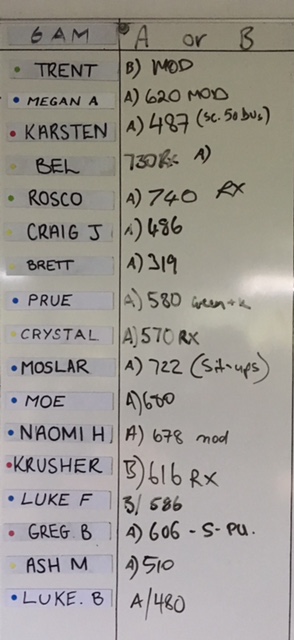 6AM A or B
TRENT B) MOD
MEGAN A A) 620 MOD
KARSTEN A) 487 (sc. 50 bus)
BEL 730 Rx A)
ROSCO A) 740 RX
CRAIG J A) 486
BRETT A) 319
PRUE A) 580 Green +k
CRYSTAL A) 570 RX
MOSLAR A) 722 (Sit-ups)
MOE A) 680
NAOMI H A) 678 mod
KRUSHER B) 616 RX
LUKE F B/ 586
GREG B A) 606 - S-PU.
ASH M A) 510
LUKE. B A/480